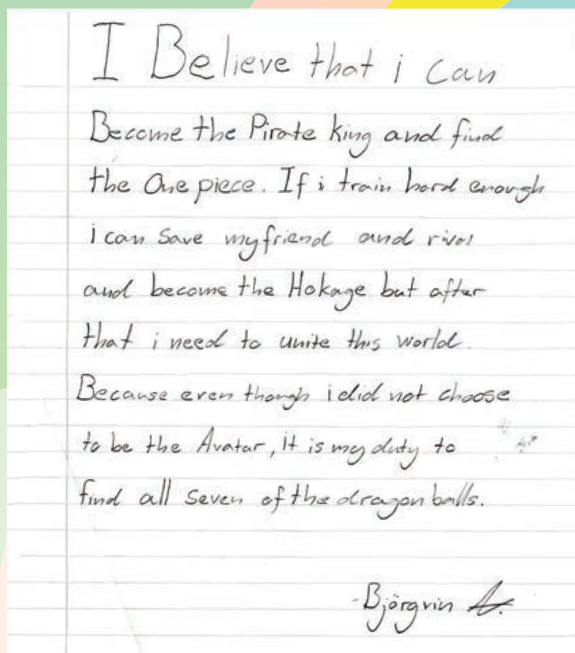 I Believe that i can
Become the Pirate king and find
the One piece. If i train hard enough
i can save my friend and rival
and become the Hokage but after
that i need to unite this world.
Because even though i did not choose
to be the Avatar, it is my duty to
find all seven of the dragon balls.
-Björgvin